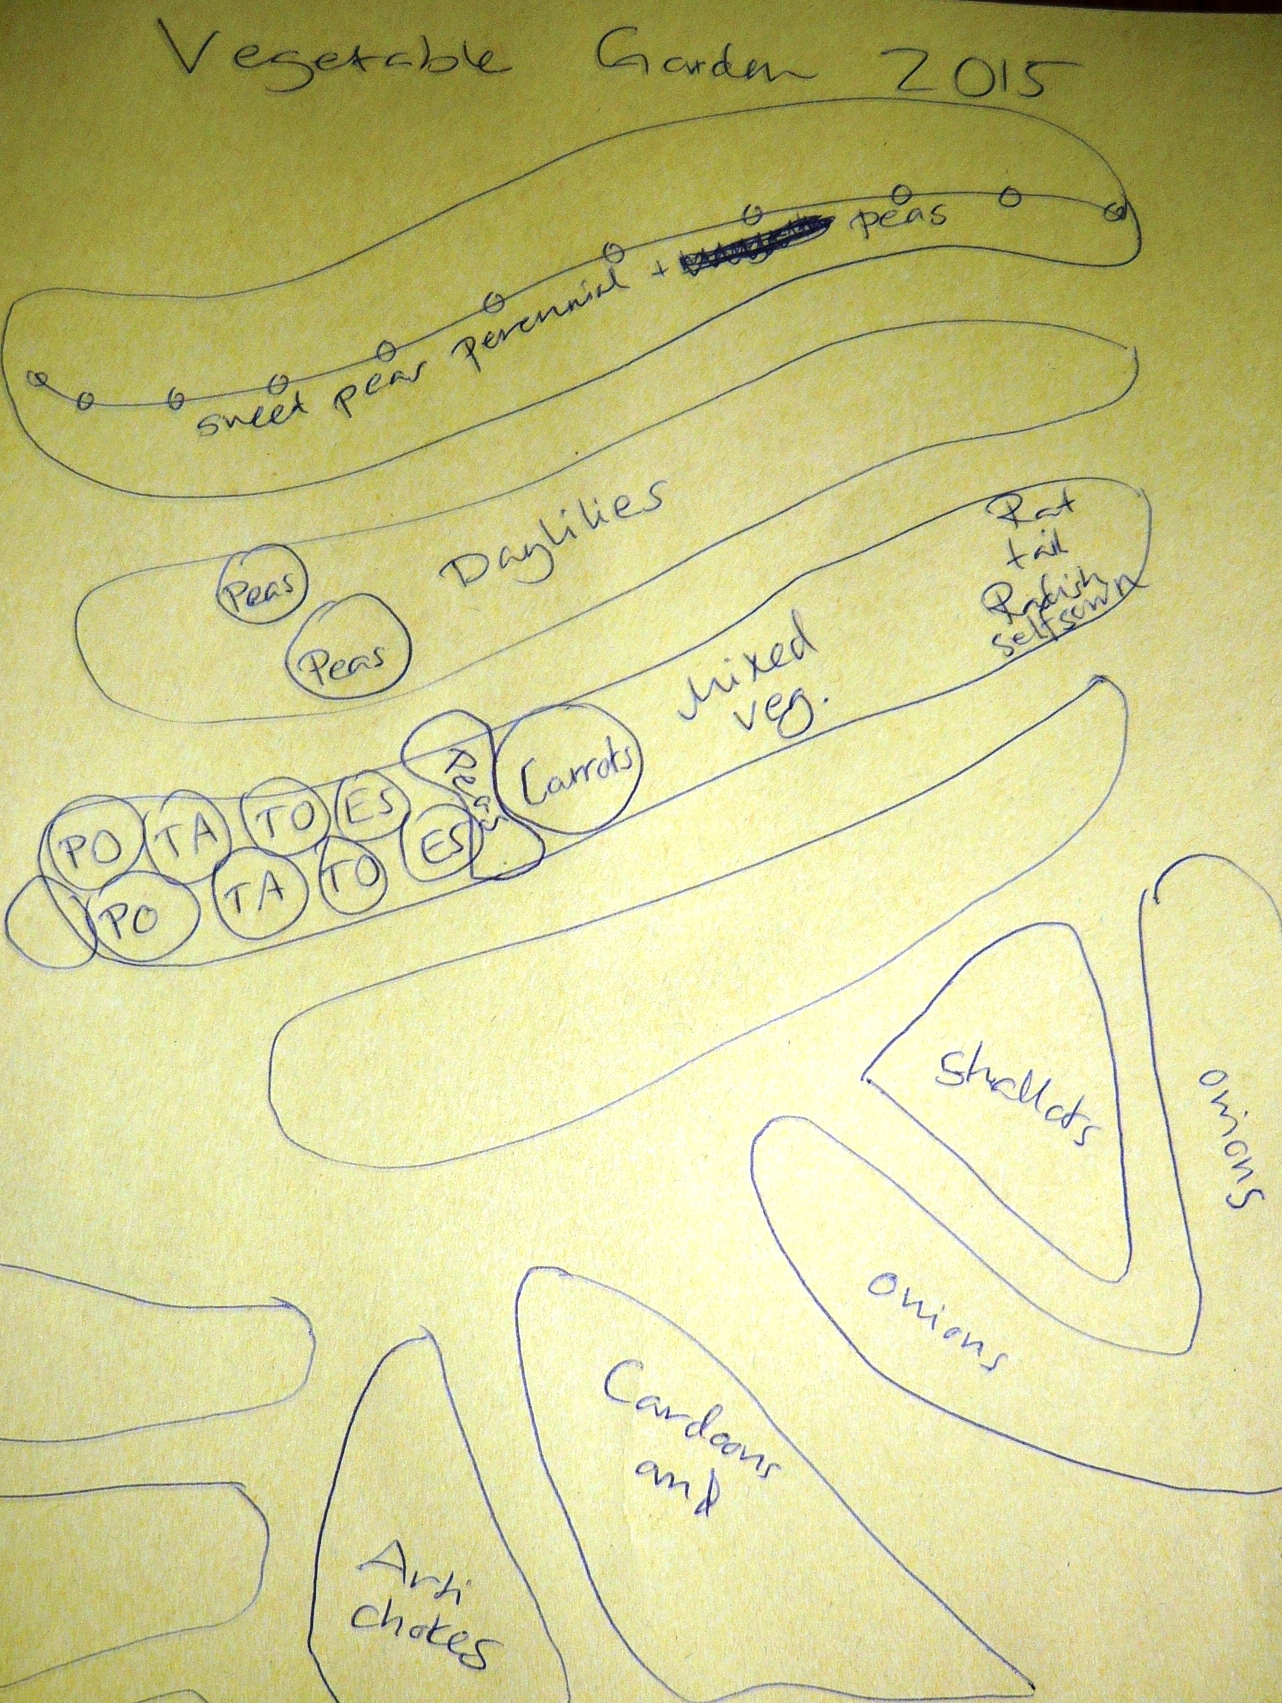 Vegetable Garden 2015
sweet peas perennial + peas
Daylilies
Peas
Peas
Rat
tail
Radish
selfsown
Mixed
veg.
Carrots
Peas
PO TA TO ES
PO TA TO ES
Shallots
onions
onions
Cardoons
and
Arti
chokes